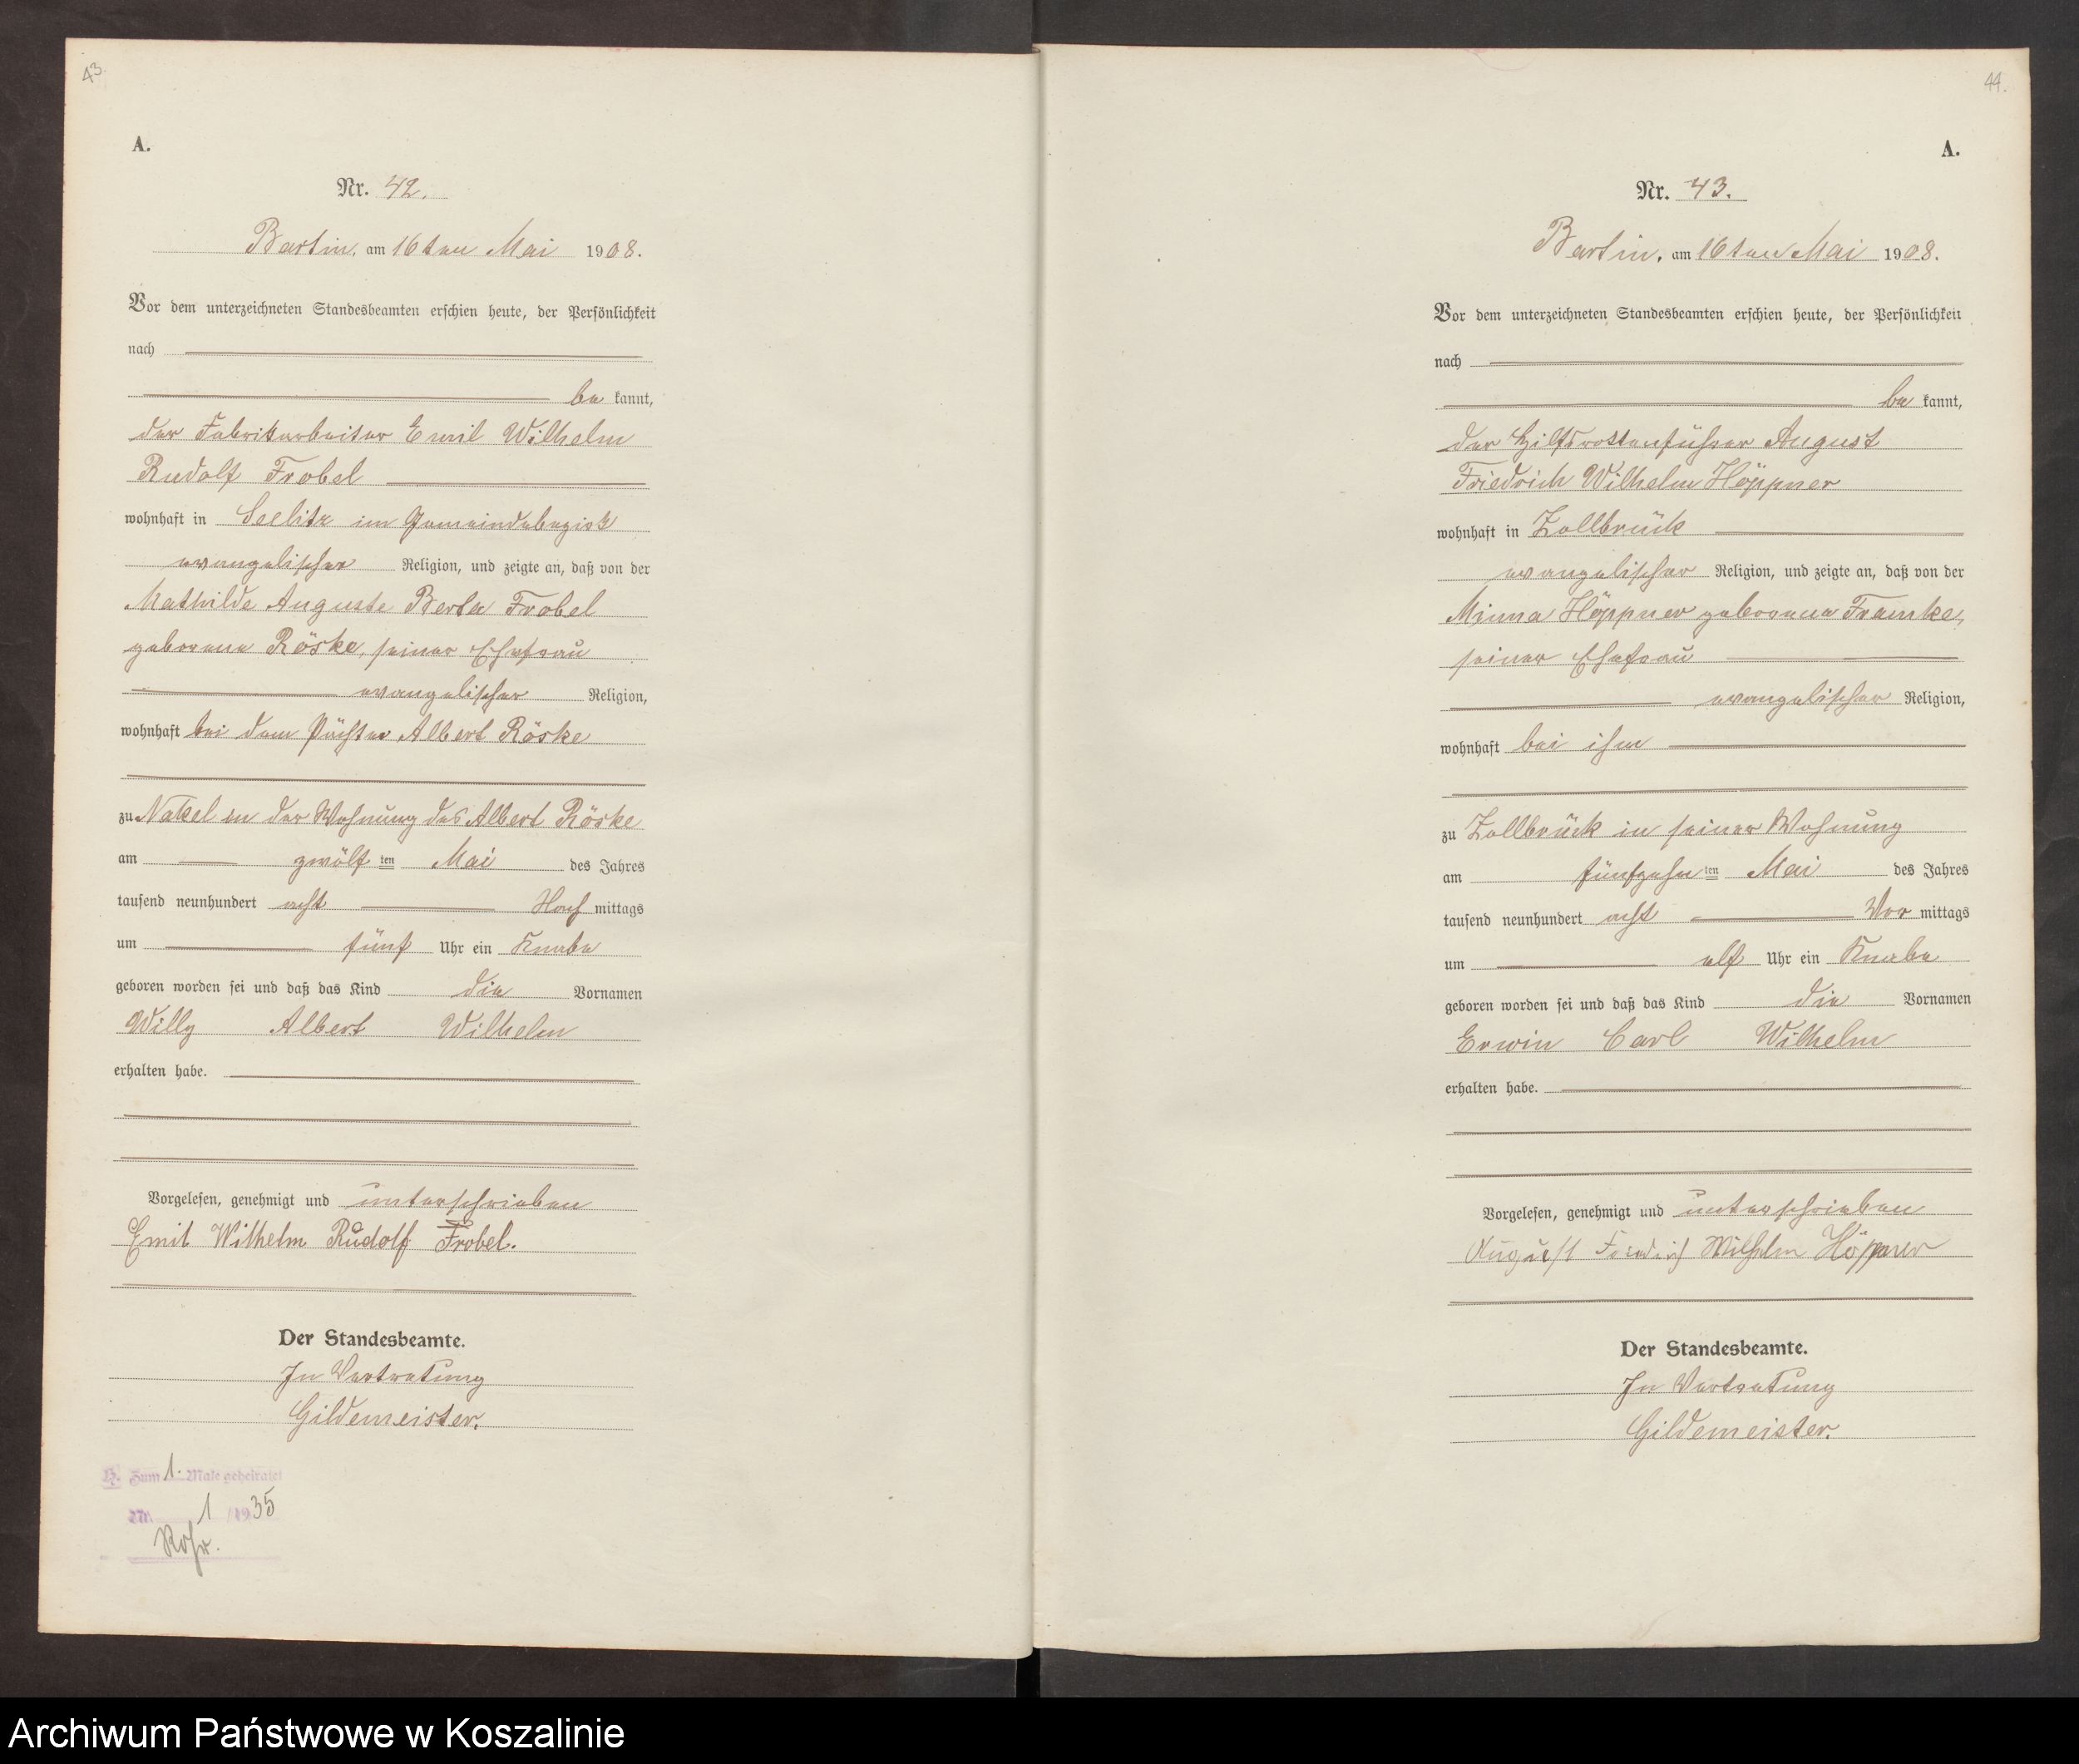 43.
A.
Nr. 42.
Bartin, am 16ten Mai 1908.
Vor dem unterzeichneten Standesbeamten erschien heute, der Persönlichkeit
nach
be kannt,
der Fabrikarbeiter Emil Wilhelm
Rudolf Frobel
wohnhaft in Seelitz im Gemeindebezirk
evangelischer Religion, und zeigte an, daß von der
Mathilde Auguste Berta Frobel
geborene Röske, seiner Ehefrau
evangelischer Religion,
wohnhaft bei dem Pächter Albert Röske
zu Nakel in der Wohnung des Albert Röske
am zwölf ten Mai des Jahres
tausend neunhundert acht Nach mittags
um fünf Uhr ein Knabe
geboren worden sei und daß das Kind die Vornamen
Willy Albert Wilhelm
erhalten habe.
Vorgelesen, genehmigt und unterschrieben
Emil Wilhelm Rudolf Frobel.
Der Standesbeamte.
In Vertretung
Gildemeister.
H. Zum 1. Male geheiratet
Nr. 1 /1935
44.
A.
Nr. 43.
Bartin, am 16ten Mai 1908.
Vor dem unterzeichneten Standesbeamten erschien heute, der Persönlichkeit
nach
be kannt,
der Hilfsrottenführer August
Friedrich Wilhelm Höppner
wohnhaft in Zollbrück
evangelischer Religion, und zeigte an, daß von der
Minna Höppner geborene Framke,
seiner Ehefrau
evangelischer Religion,
wohnhaft bei ihm
zu Zollbrück in seiner Wohnung
am fünfzehn ten Mai des Jahres
tausend neunhundert acht Vor mittags
um elf Uhr ein Knabe
geboren worden sei und daß das Kind die Vornamen
Erwin Carl Wilhelm
erhalten habe.
Vorgelesen, genehmigt und unterschrieben
August Friedrich Wilhelm Höppner
Der Standesbeamte.
In Vertretung
Gildemeister.
Archiwum Państwowe w Koszalinie